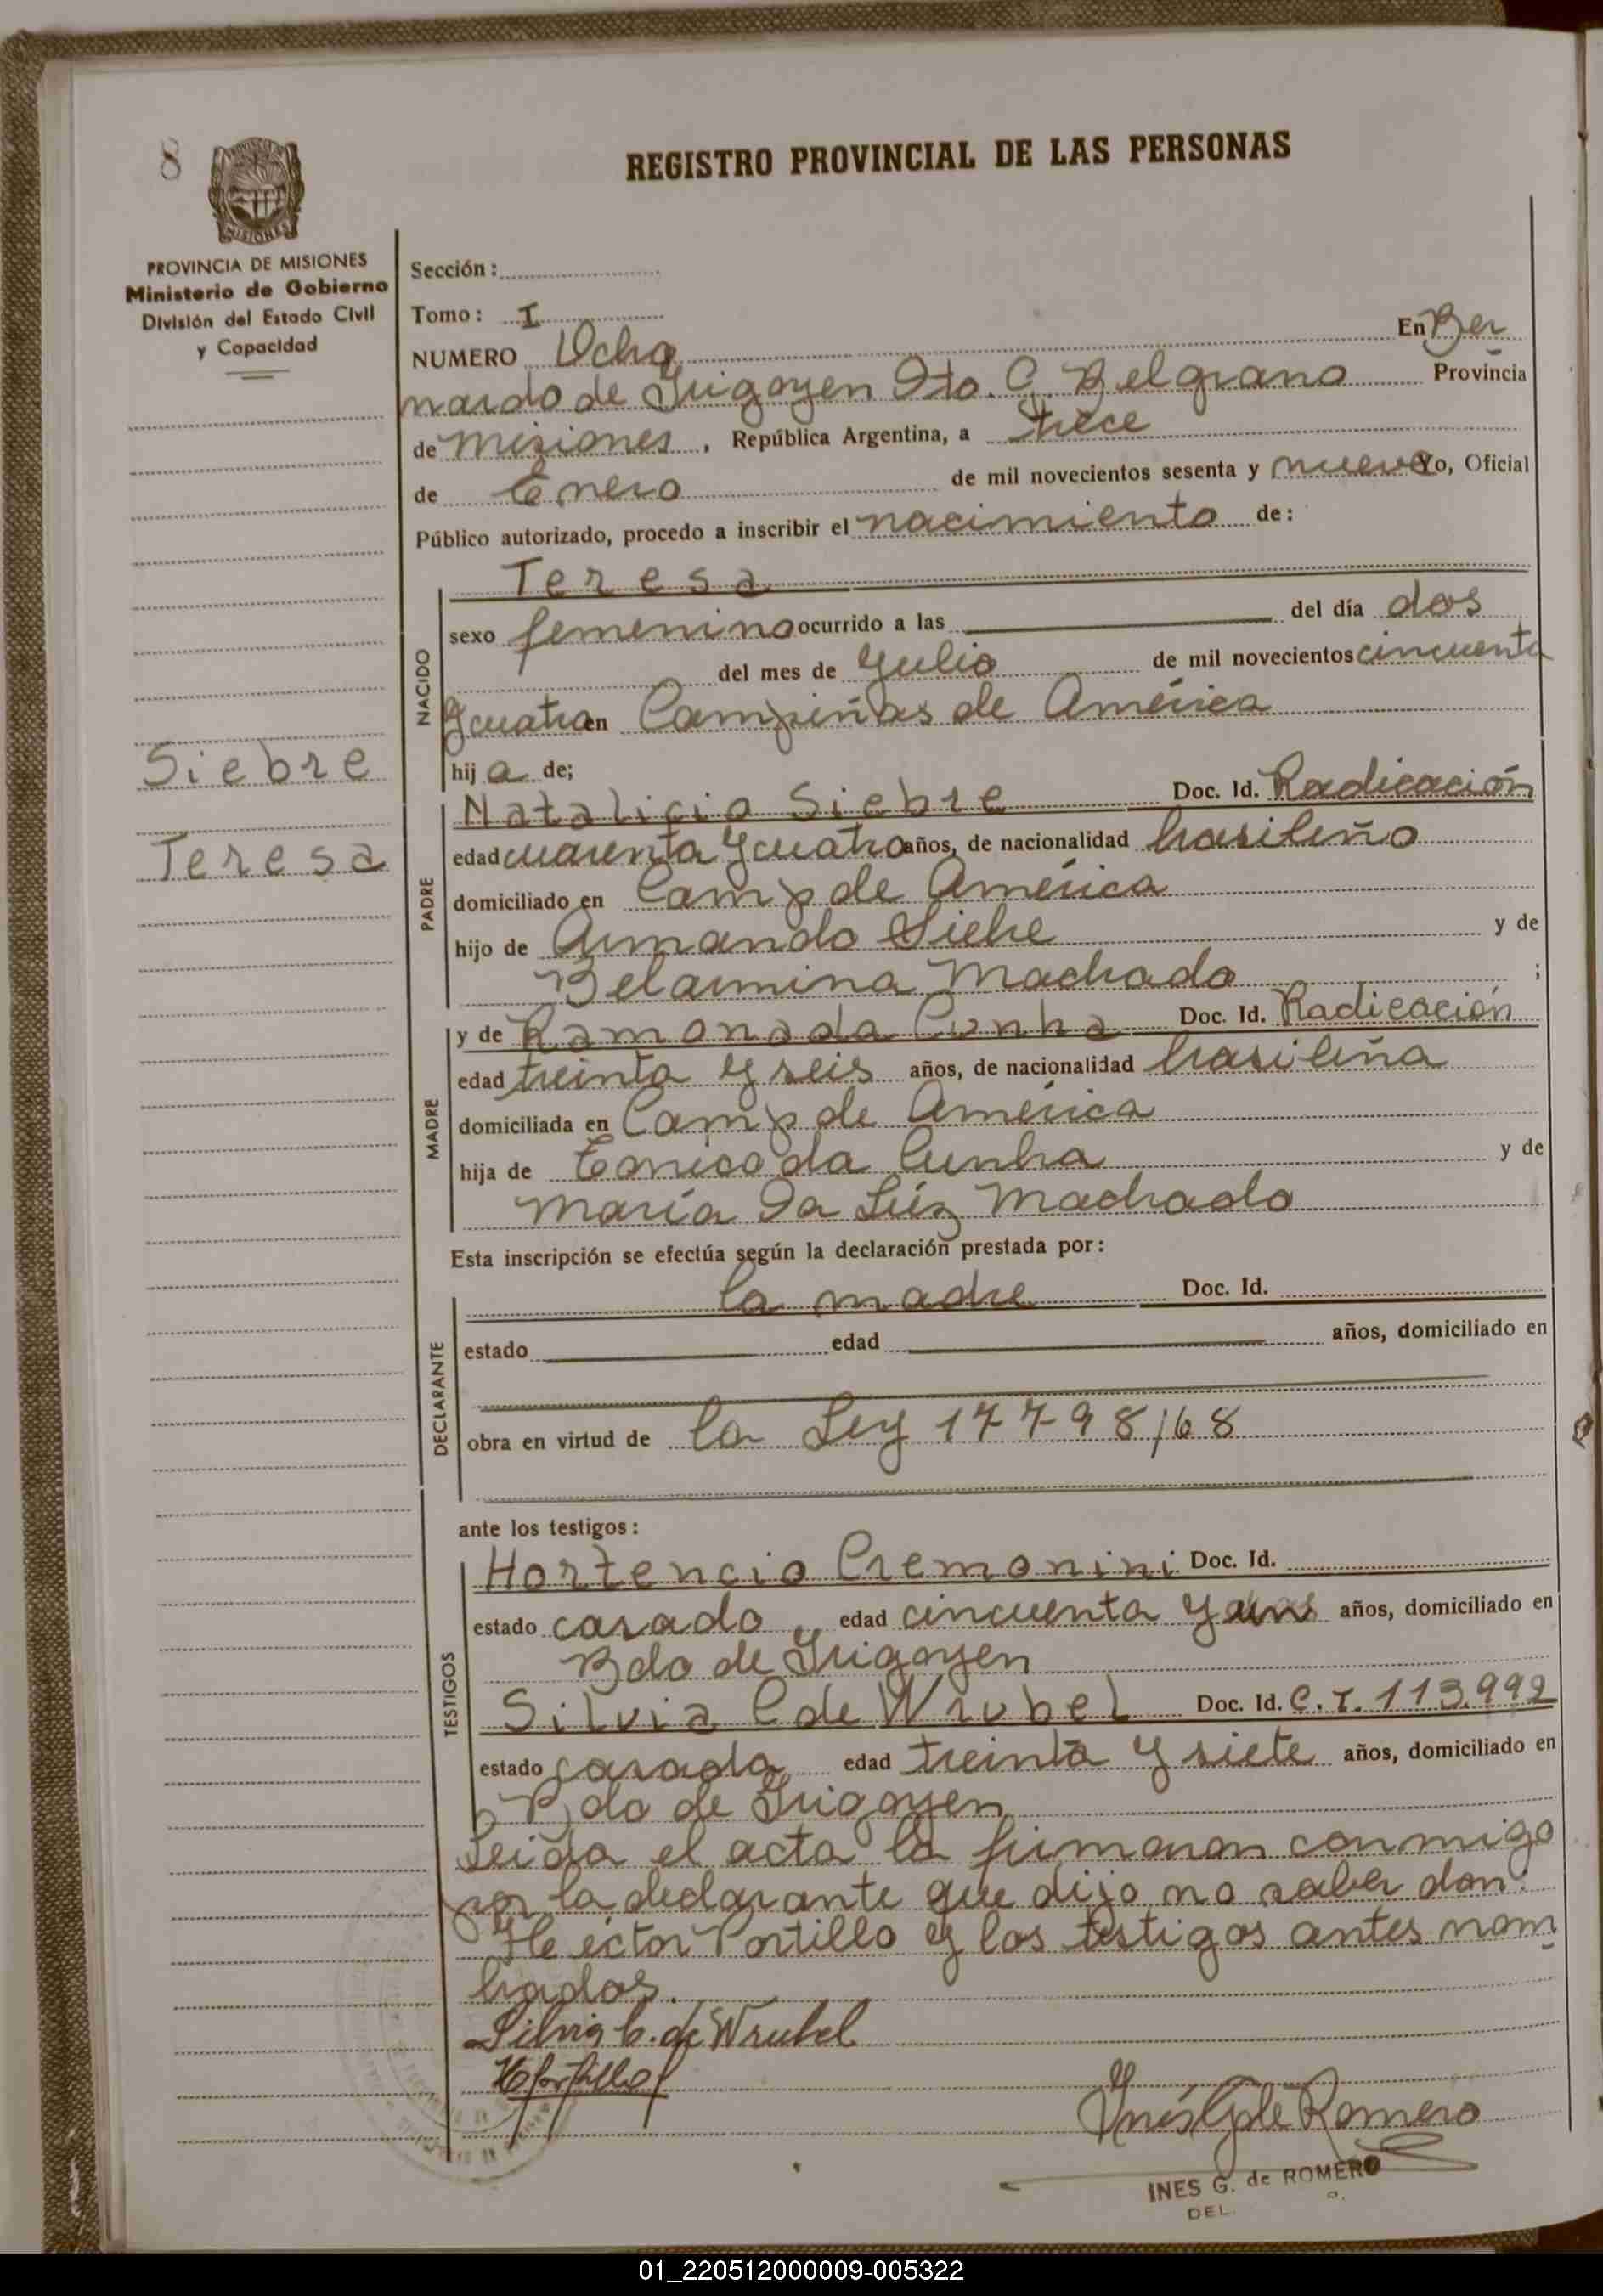 8
REGISTRO PROVINCIAL DE LAS PERSONAS
MISIONES
PROVINCIA DE MISIONES
Ministerio de Gobierno
División del Estado Civil
y Capacidad
Siebre
Teresa
Sección:
Tomo: I
NUMERO Ocho En Ber
nardo de Irigoyen Dto. G. Belgrano Provincia
de Misiones, República Argentina, a trece
de Enero de mil novecientos sesenta y nueve Yo, Oficial
Público autorizado, procedo a inscribir el nacimiento de:
NACIDO
Teresa
sexo femenino ocurrido a las del día dos
del mes de Julio de mil novecientos cincuenta
y cuatro en Campiñas de América
hija de;
PADRE
Natalicio Siebre Doc. Id. Radicación
edad cuarenta y cuatro años, de nacionalidad brasileño
domiciliado en Camp de América
hijo de Armando Siebre y de
Belarmina Machado ;
MADRE
y de Ramona da Cunha Doc. Id. Radicación
edad treinta y seis años, de nacionalidad brasileña
domiciliada en Camp de América
hija de da Cunha y de
María Da Lúz Machado
Esta inscripción se efectúa según la declaración prestada por:
DECLARANTE
la madre Doc. Id.
estado edad años, domiciliado en
obra en virtud de la Ley 17798/68
ante los testigos:
TESTIGOS
Hortencio Cremonini Doc. Id.
estado casado edad cincuenta y años, domiciliado en
Bdo de Irigoyen
Silvia C de Wrubel Doc. Id. C.I. 113.992
estado casada edad treinta y siete años, domiciliado en
Bdo de Irigoyen
Leida el acta la firmaron conmigo
por la declarante que dijo no saber don
Héctor Portillo y los testigos antes nom
brados.
Silvia C. de Wrubel
HPortillo
Inés G de Romero
INES G. de ROMERO
DEL.
01_220512000009-005322